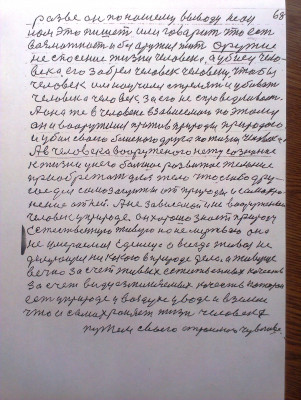 68
разве он по нашему выводу если
он это пишет или говорит это ест
возможность обуружит это оружие
не спосение жизни человека, а убиец чело-
века его забрем человек человеку чтобы
человек им научился стрелят и убиват
человека человек за его не справедливост.
А она же в человеке взависемост по этому
он и вооружился против природы природного
и убил своего ближнего друга по жизни человека.
А в человека вооруженого нету сознание
к жизни у него большое розвитое желание
приобретат для тела чтослибо дру-
гое для самозащиты от природы и сомохро
нение от ней. А не зависемой и не вооружоной
человек у природе он хорошо знает природу
естественую живую но не мертвою она
не умералася Еденица о всегда живая не
дающая никокого в природе дела. а живущие
вечно за счет живых естественых качеств
за счет видуизменяемых качеств которая
ест у природе у воздухе у воде и в земле
что и самахраняет жизн человека
путем своего открытого чувства.